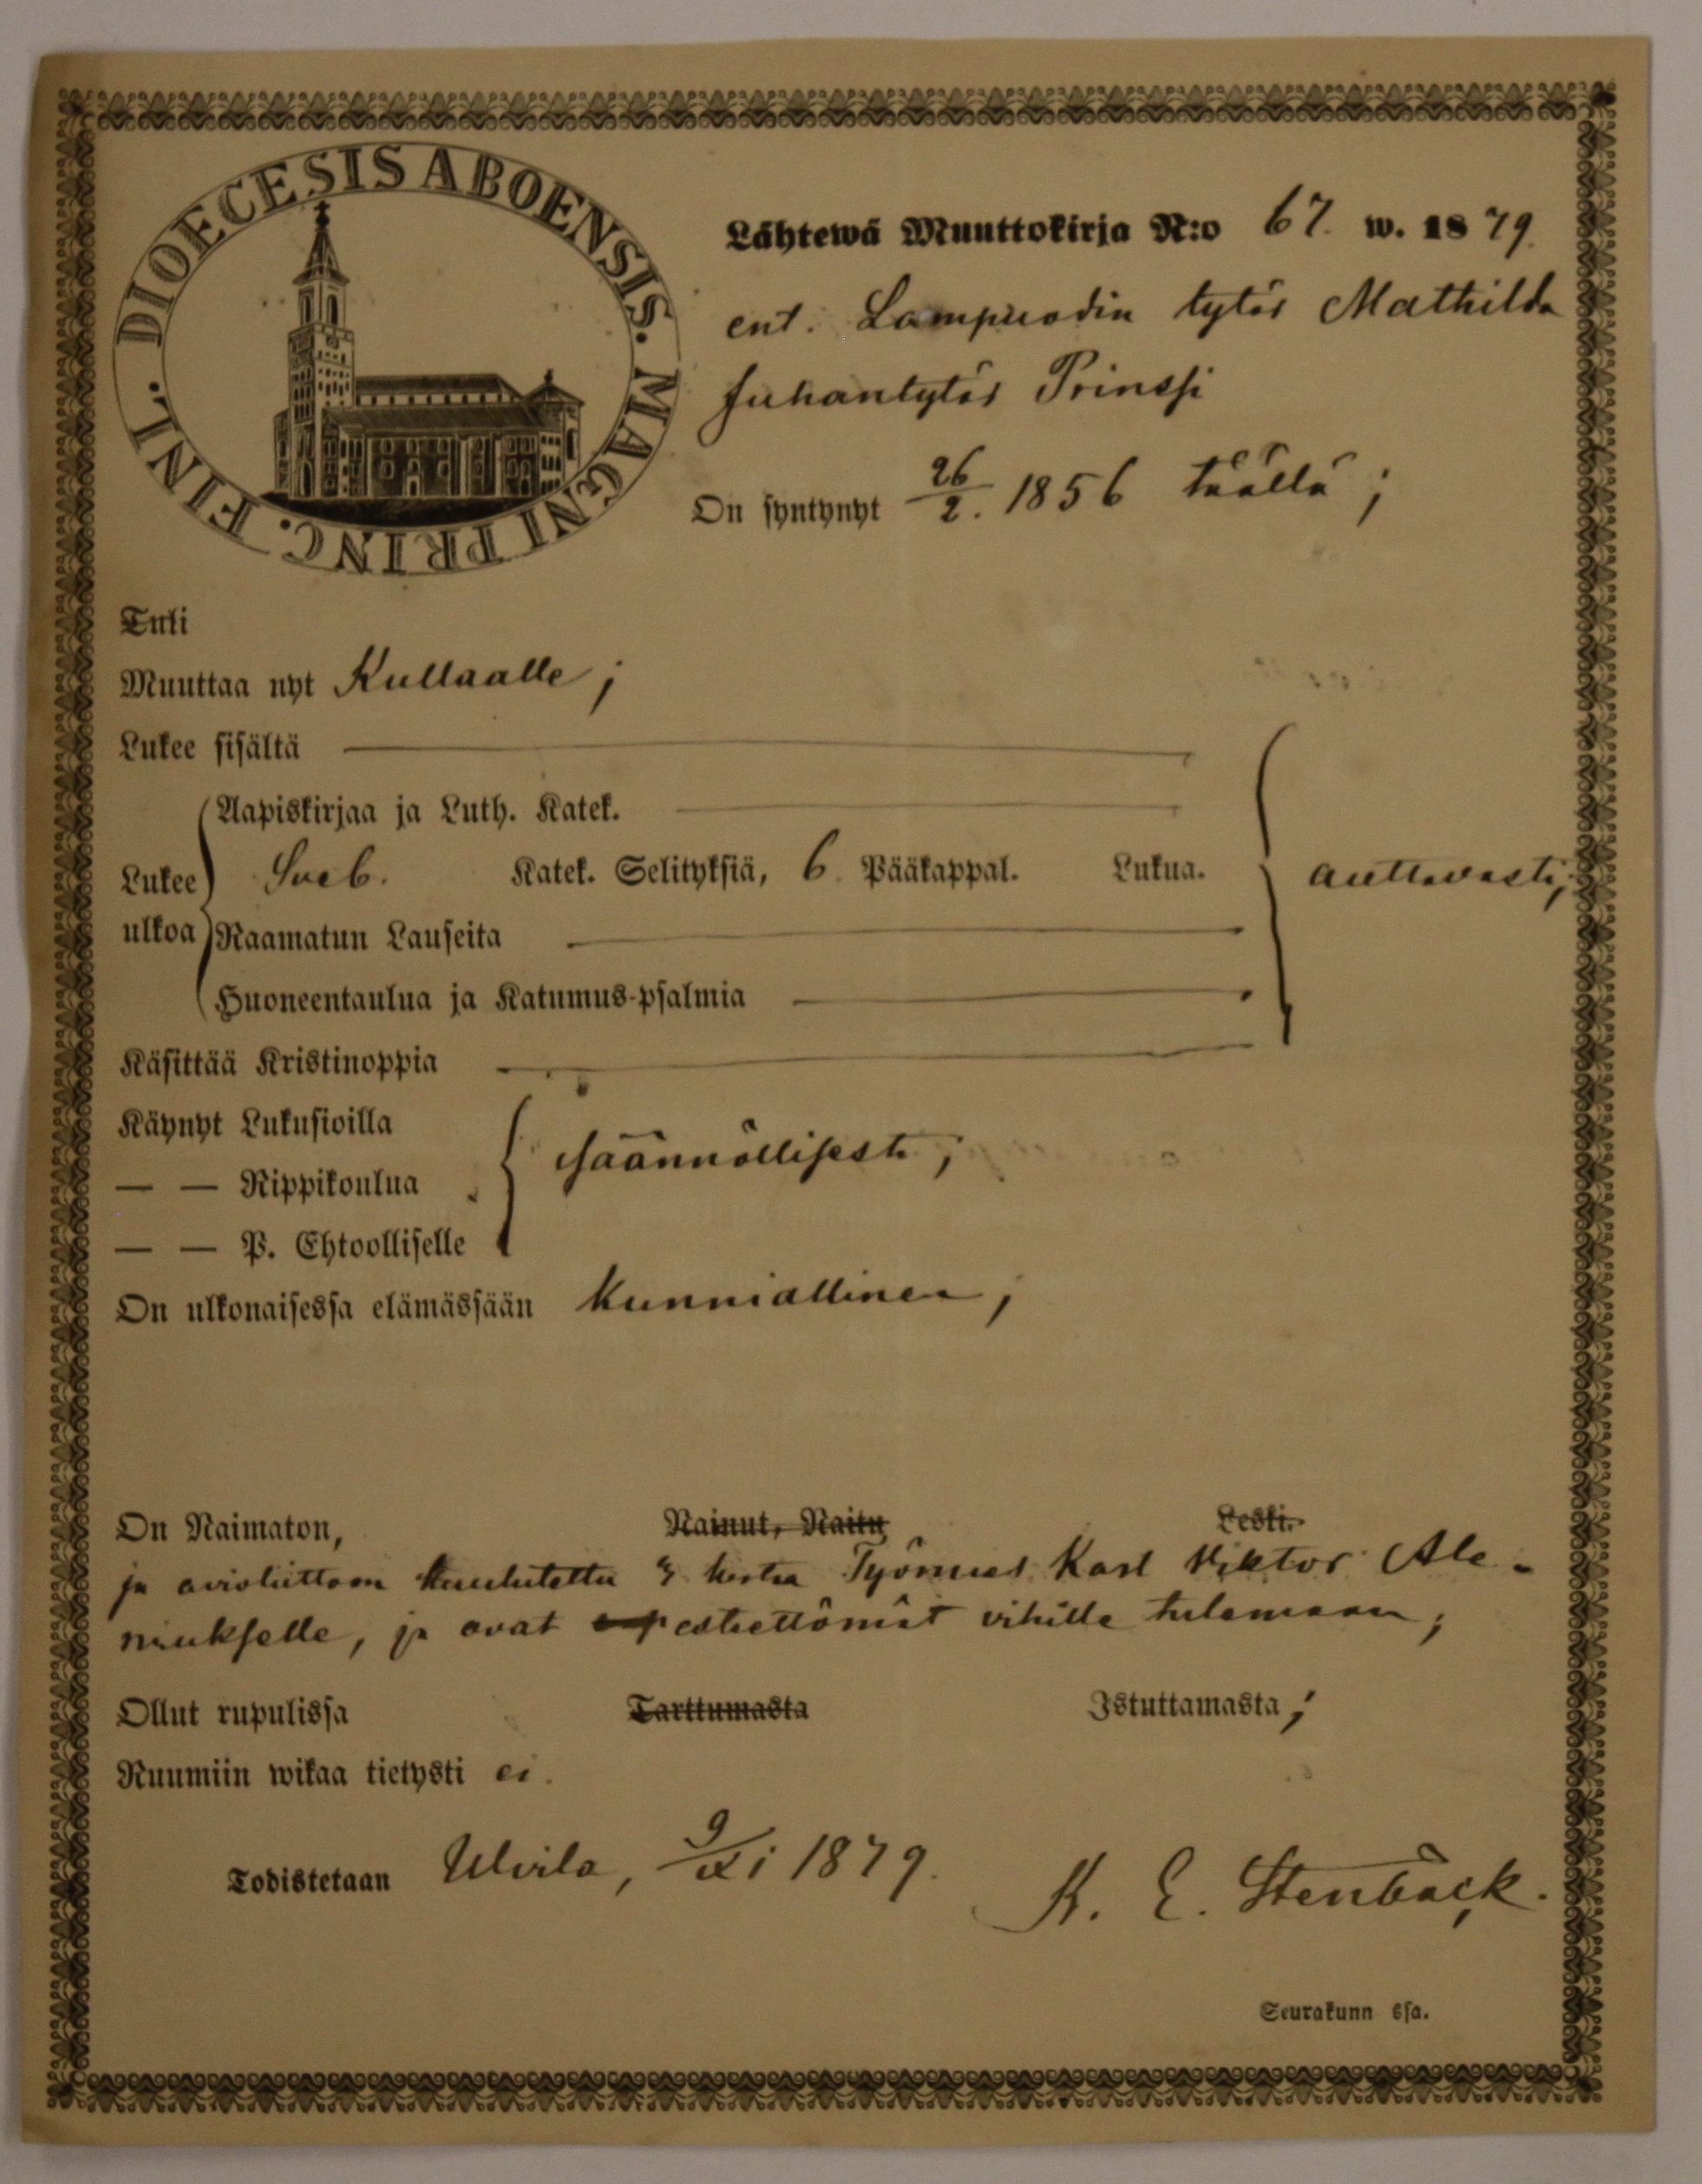 DIOECESIS ABOENSIS. MAGNI PRINC. FINL.
Lähtewä Muuttokirja N:o 67. w. 1879.
ent. Lampuodin tytär Mathilda
Juhantytär Prinssi
On syntynyt 26/2. 1856 täällä;
Tuli
Muuttaa nyt Kullaalle;
Lukee sisältä
Aapiskirjaa ja Luth. Katek.
Lukee ulkoa
Sveb. Katek. Selityksiä, 6 Pääkappal. Lukua. auttavasti;
Raamatun Lauseita
Huoneentaulua ja Katumus-psalmia
Käsittää Kristinoppia
Käynyt Lukusioilla
— — Rippikoulua säännöllisesti;
— — P. Ehtoolliselle
On ulkonaisessa elämässään kunniallinen;
On Naimaton, Nainut, Naitu Leski.
ja avioliittoon kuulutettu 3 kertaa Työmies Karl Viktor Ale-
niukselle, ja ovat esteettömät vihille tulemaan;
Ollut rupulissa Tarttumasta Istuttamasta;
Ruumiin wikaa tietysti ei.
Todistetaan Ulvila, 9/XI 1879. K. E. Stenbäck.
Seurakunn ssa.